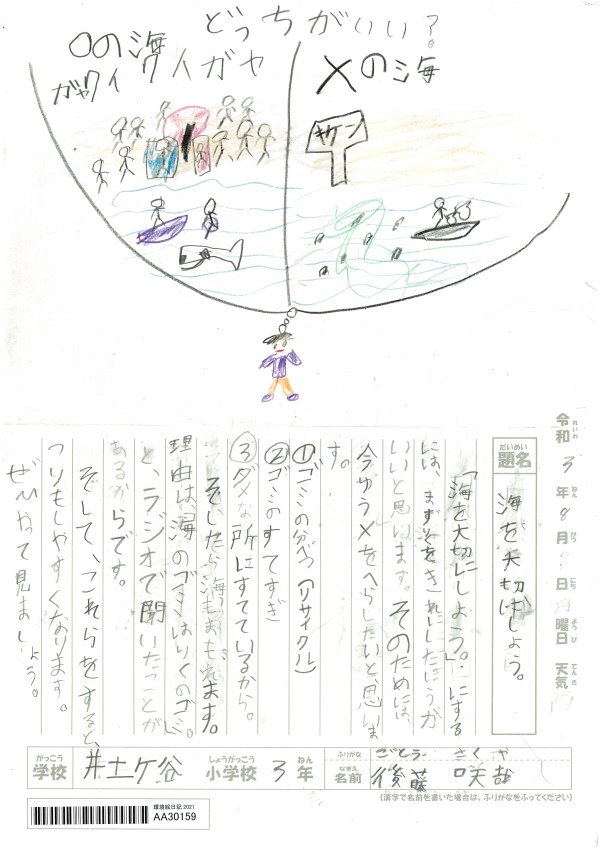 どっちがいい?
○の海
ガヤワイワイガヤ
×の海
令和3年8月 日 曜日 天気
れいわ ねん がつ にち ようび てんき
だいめい
題名
海を大切にしよう。
「海を大切にしよう。」にする
には、まずりくをきれいにしたほうが
いいと思います。そのためには、
今ゆう×をへらしたいと、思いま
す。
①ゴミの分べつ(リサイクル)
②ゴミのすてすぎ
③ダメな所にすてているから。
そしたら海もまもれます。
理由は、海のゴミはりくのゴミ
と、ラジオで聞いたことが
あるからです。
そして、これらをすると、
つりもしやすくなります。
ぜひやって見ましょう。
がっこう
学校
井土ケ谷
しょうがっこう
小学校
3
ねん
年
ふりがな
ごとう さくや
なまえ
名前
後藤 咲哉
(漢字で名前を書いた場合は、ふりがなをふってください)
環境絵日記 2021
AA30159